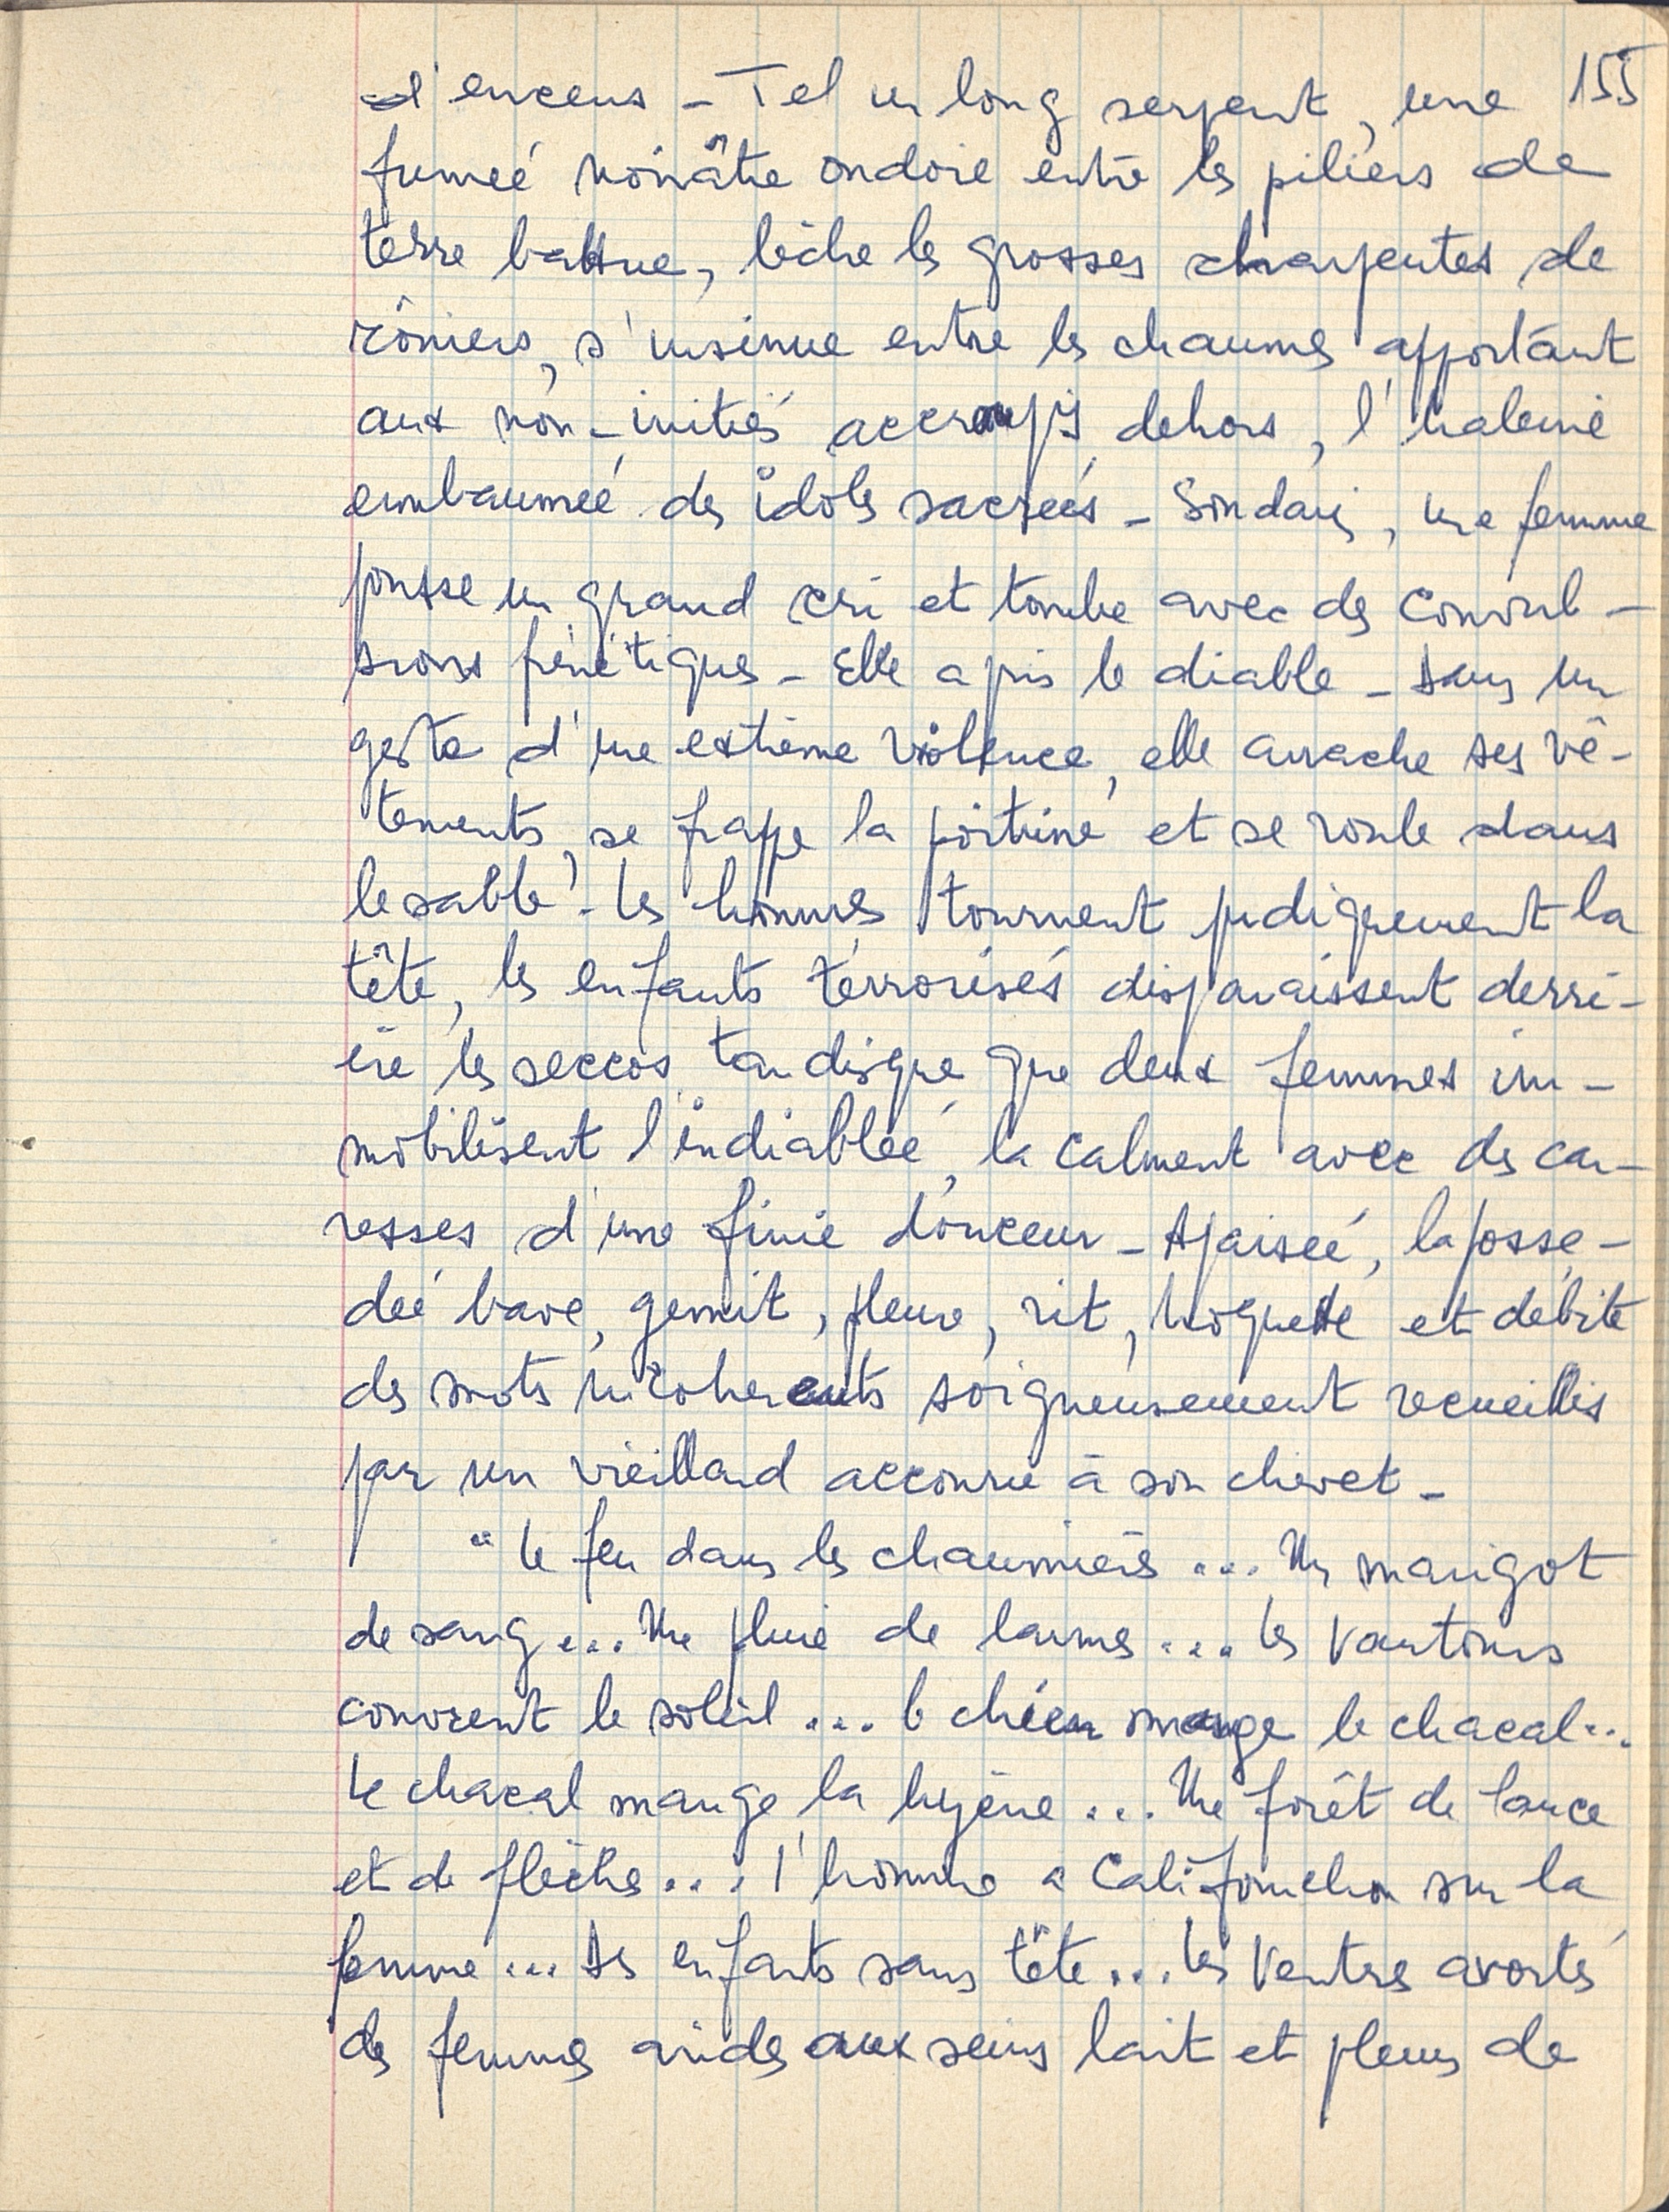 d'encens - Tel un long serpent, une 155
fumée noirâtre ondoie entre les piliers de
terre battue, lèche les grosses charpentes de
rôniers, s'insinue entre les chaumes apportant
aux non-initiés accroupis dehors, l'haleine
embaumée des idoles sacrées - Soudain, une femme
pousse un grand cri et tombe avec des convul-
sions frénétiques - Elle a pris le diable - Dans un
geste d'une extrême violence, elle arrache ses vê-
tements, se frappe la poitrine et se roule dans
le sable - Les hommes tournent pudiquement la
tête, les enfants terrorisés disparaissent derri-
ère les seccos tandisque que deux femmes im-
mobilisent l'indiablée, la calment avec des ca-
resses d'une finie douceur - Apaisée, la possé-
dée bave, gemit, pleure, rit, hoquette et débite
des mots incoherents soigneusement recueillis
par un vieillard accouru à son chevet -
" Le feu dans les chaumières ... Un marigot
de sang ... Une pluie de larmes .... Les vautours
couvrent le soleil .... le chien mange le chacal...
Le chacal mange la hyène .... Une forêt de lance
et de flèches .... l'homme a califourchon sur la
femme ... Des enfants sans tête ... Les ventres avortés
des femmes arides aux seins lait et pleurs de